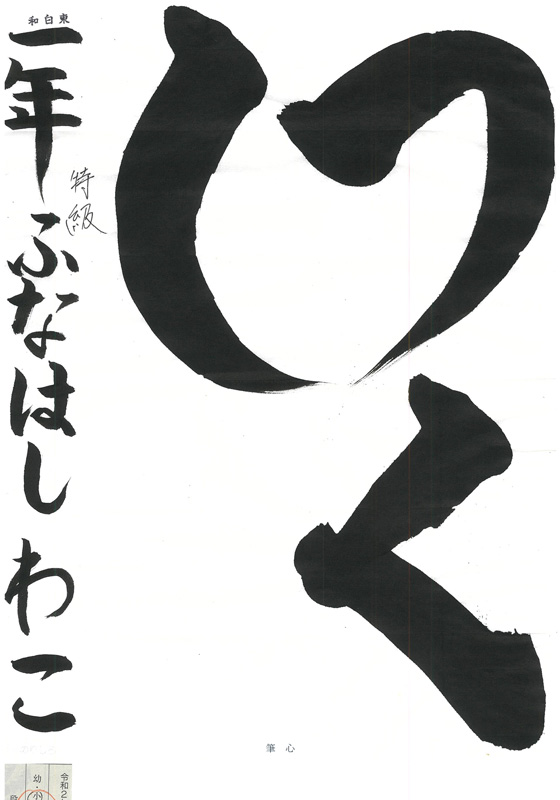 つく
し
特級
一年ふなはしわこ
和白東
筆心
令和2
幼・小